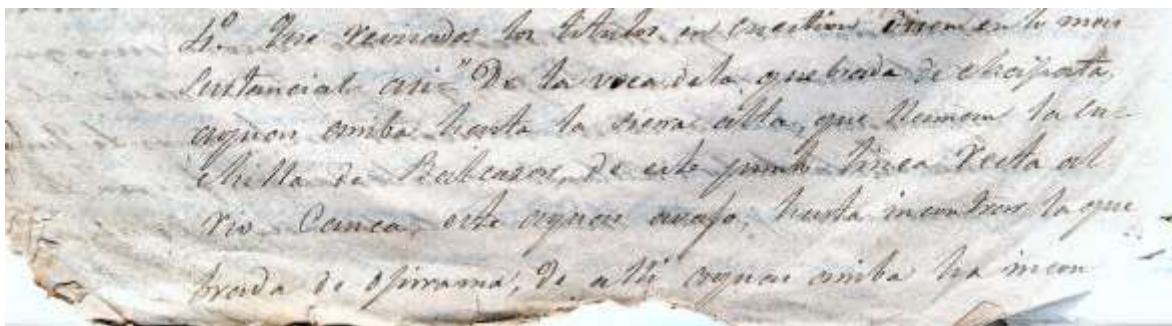 4o. Que revisados los titulos en cuestion dicen en lo mas
sustancial asi "De la voca dela quebrada de
aguas arriba hasta la sierra alta, que llaman la cu=
chilla de de este punto linea recta al
rio Cauca, este aguas avajo, hasta incontrar la que
brada de Opirama, de alli aguas arriba ha incon